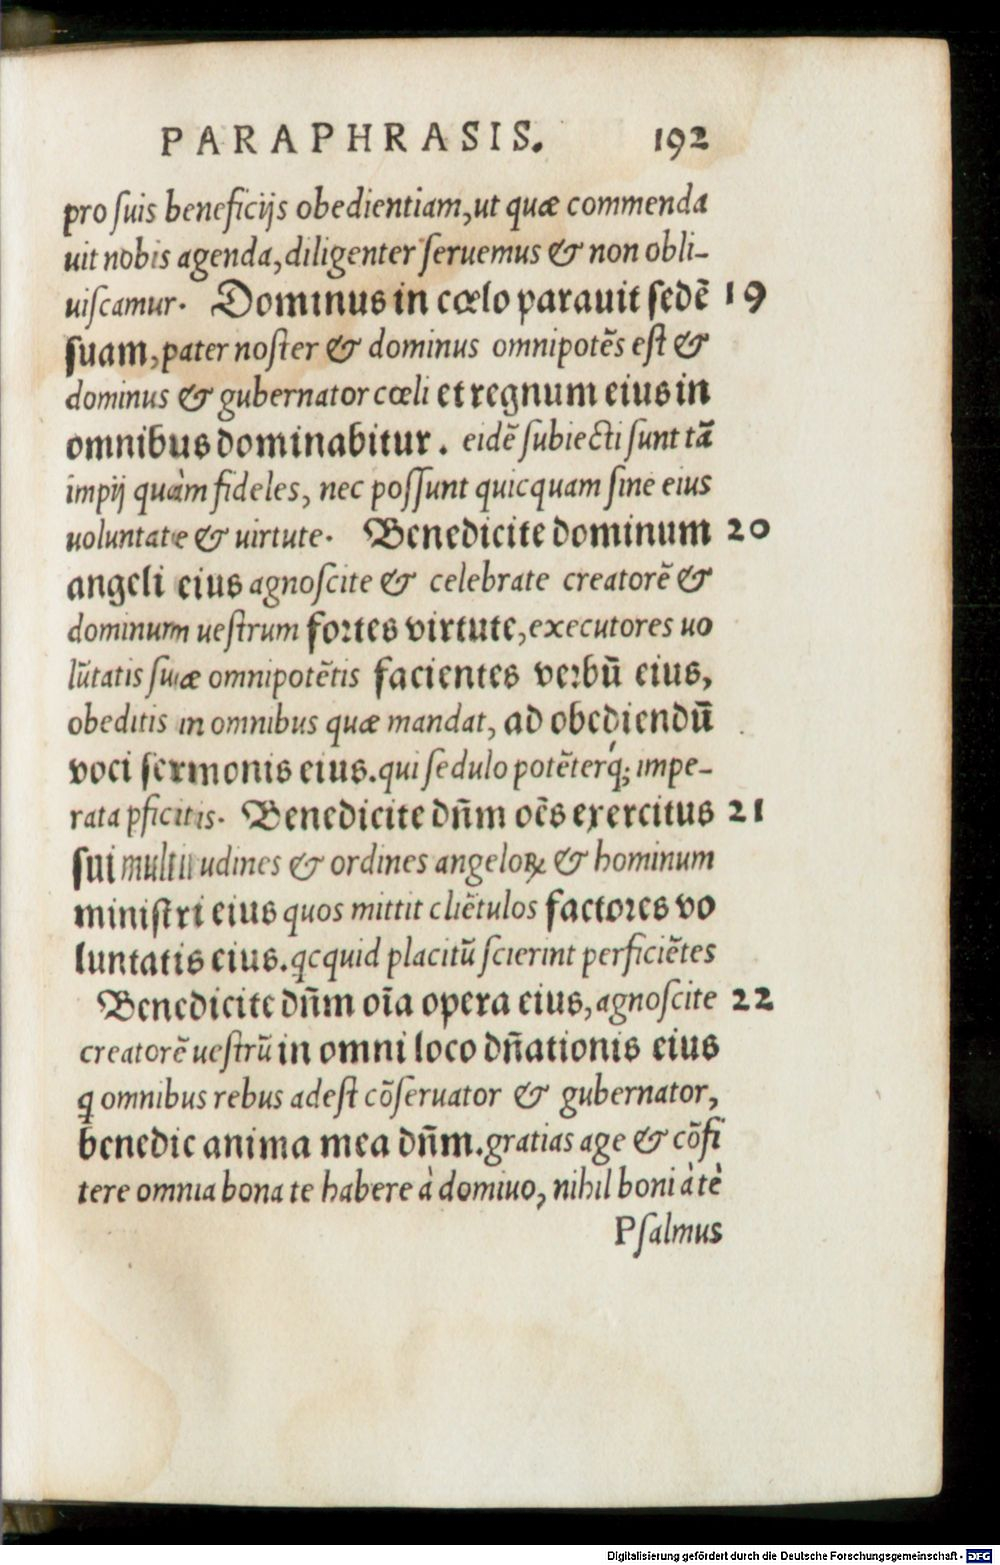 PARAPHRASIS. 192
pro ſuis beneficijs obedientiam, ut quæ commenda
uit nobis agenda, diligenter ſeruemus & non obli-
uiſcamur. Dominus in cœlo parauit ſedē 19
ſuam, pater noſter & dominus omnipotēs eſt &
dominus & gubernator cœli et regnum eius in
omnibus dominabitur. eidē ſubiecti ſunt tā
impij quàm fideles, nec poſſunt quicquam ſine eius
uoluntate & uirtute. Benedicite dominum 20
angeli eius agnoſcite & celebrate creatorē &
dominum ueſtrum foꝛtes virtute, executores uo
lūtatis ſuæ omnipotētis facientes veꝛbū eius,
obeditis in omnibus quæ mandat, ad obediendū
voci ſermonis eius. qui ſedulo potēterq́; impe-
rata ꝑficitis. Benedicite dñm oēs exercitus 21
ſui multitudines & ordines angeloꝝ & hominum
miniſtri eius quos mittit cliētulos factoꝛes vo
luntatis eius. qcquid placitū ſcierint perficiētes
Benedicite dñm oīa opera eius, agnoſcite 22
creatorē ueſtrū in omni loco dñationis eius
q omnibus rebus adeſt cōſeruator & gubernator,
benedic anima mea dñm. gratias age & cōfi
tere omnia bona te habere à domiuo, nihil boni à tè
Pſalmus
Digitalisierung gefördert durch die Deutsche Forschungsgemeinschaft - DFG